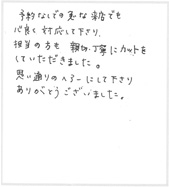 予約なしでの急な来店でも
心良く対応して下さり、
担当の方も親切・丁寧にカットを
していただきました。
思い通りのヘアーにして下さり
ありがとうございました。